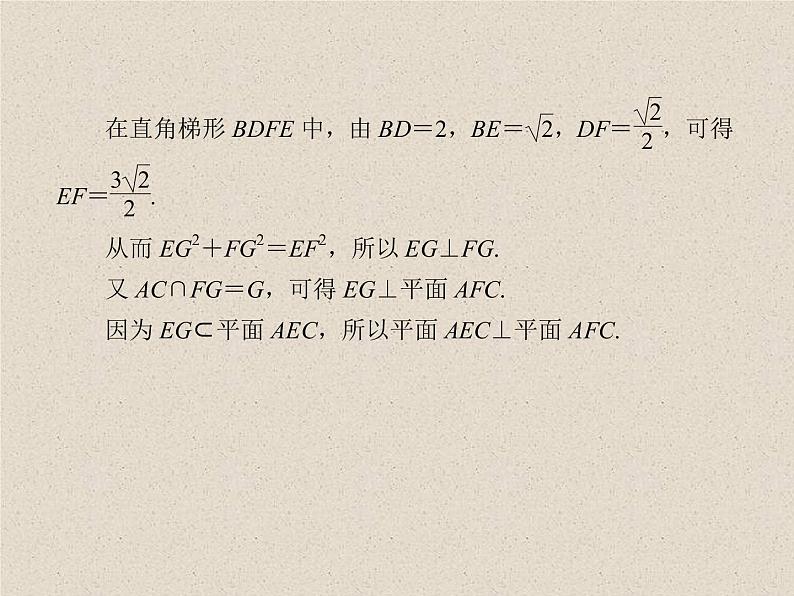 在直角梯形 BDFE 中，由 BD＝2，BE＝√2，DF＝√2/2，可得
EF＝3√2/2.
从而 EG²＋FG²＝EF²，所以 EG⊥FG.
又 AC∩FG＝G，可得 EG⊥平面 AFC.
因为 EG⊂平面 AEC，所以平面 AEC⊥平面 AFC.